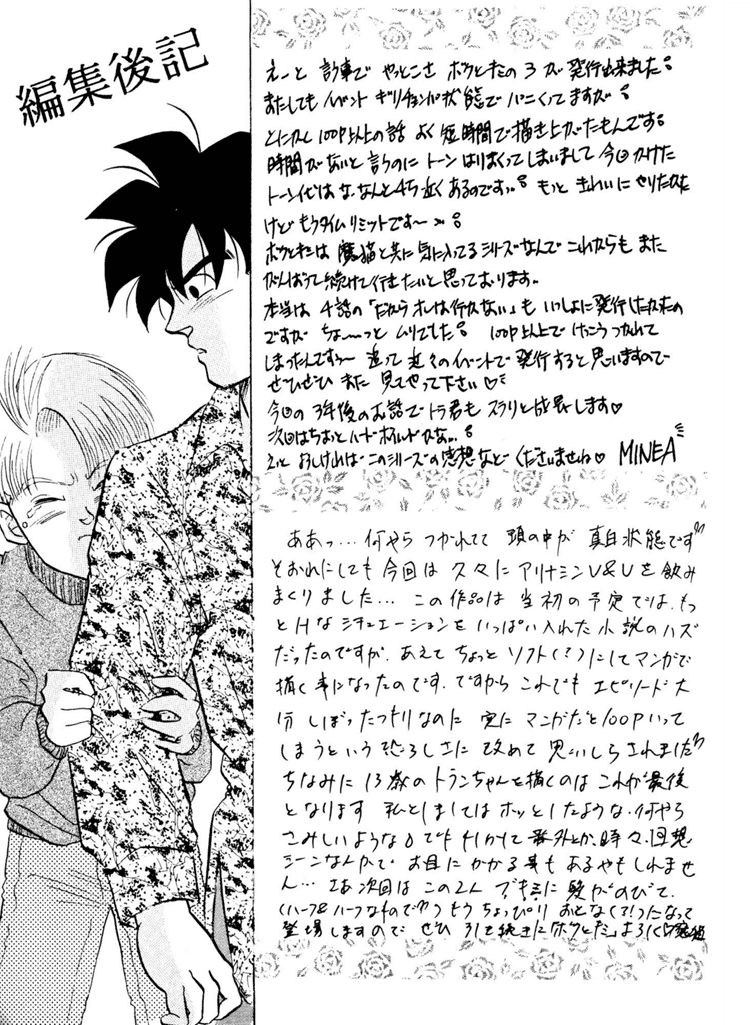 編集後記
えーと 訳事で やっとこさ ボクとキミの3が 発行出来ました
またしても イベント ギリチョンパ状態で パニくってますが
とにかく100P以上の話 よく短時間で描き上がったもんです
時間がないと言うのに トーンはりまくってしまいまして 今回かけた
トーン代は な、なんと4ち近くあるのですぅ もっと きれいに やりたかった
けど もうタイムリミットです〜
は 魔猫と共に気に入ってるシリーズなんで これからも また
がんばって続けて行きたいと思っております。
本当は 4話の「だからオレは行かない」も いっしょに発行したかったの
ですが ちょ〜っと ムリでした 100P以上で けっこうつかれて
しまったんですぅ〜 追って 近々のイベントで 発行すると思いますので
ぜひぜひ また 見てやって下さい♡
今回の3年後のお話で トラ君も スラリと成長します♡
次回はちょっと ハードボイルドかな
えと よろしければ このシリーズの感想など くださいませね♡ MINEA
ああっ…何やら つかれてて 頭の中が 真白状態です
それにしても 今回は 久々に アリナミンV&Vを飲み
まくりました… この作品は 当初の予定では、もっ
とHな シチュエーションを いっぱい入れた 小説のハズ
だったのですが、あえて ちょっと ソフト(?)にして マンガで
描く事になったのです。ですから これでも エピソード大
分 しぼったつもりなのに 実に マンガだと100Pいって
しまうという 恐ろしさに 改めて 思いしらされました
ちなみに 13歳のトランちゃんを描くのは これが最後
となります 私としましては ホッとしたような、何やら
さみしいような 番外とか、時々、回想
シーンなんかで お目にかかる事も あるやもしれませ
ん… さあ次回は この2人 ブキミに 髪がのびて、
(ハーフ&ハーフなもので) もうちょっぴり おとなく(?)なって
登場しますので ぜひ 引き続き よろしく